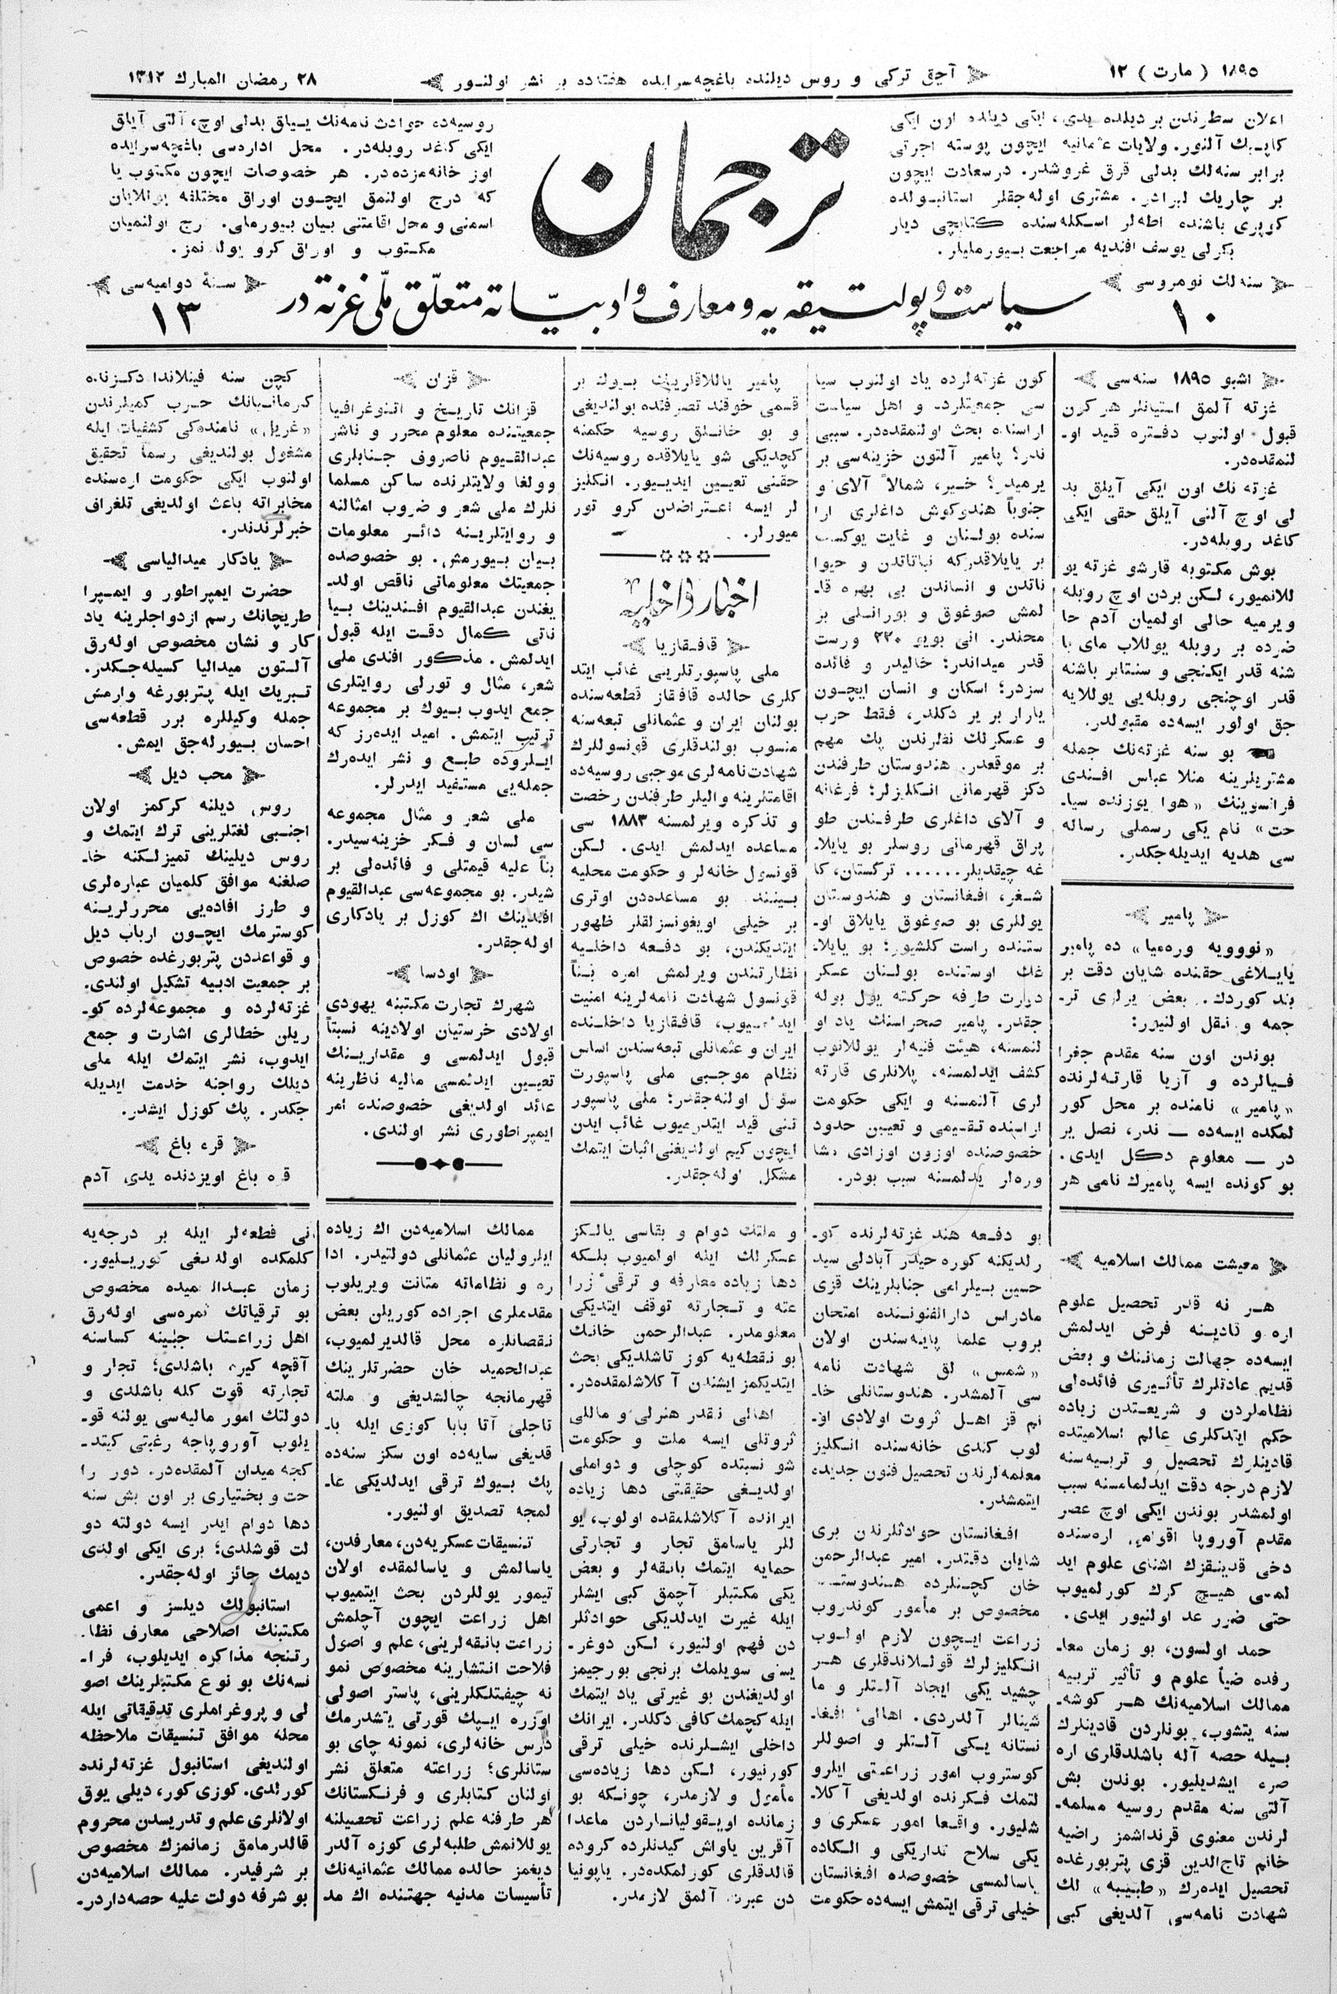 ١٨٩٥ ( مارت ) ١٢
آچق تركی و روس دیلنده باغچه‌سرایده هفته‌ده بر نشر اولنـور
٢٨ رمضان المبارك ١٣١٢
اعلان سطرندن بر دیلده یدی، ایكی دیلده اون ایكی
كاپیك آلنور. ولایات عثمانیه ایچون پوسته اجرتی
برابر سنه‌لك بدلی قرق غروشدر. درسعادت ایچون
بر چاریك لیرادر. مشتری اوله‌جقلر استانبولده
كوپری باشنده اطه‌لر اسكله‌سنده كتابچی دیار
بكرلی یوسف افندیه مراجعت بیورملیلر.
سنه‌لك نومروسی
١٠
ترجمان
روسیه‌ده حوادث نامه‌نك بیللق بدلی اوچ، آلتی آیلق
ایكی كاغد روبله‌در. محل اداره‌سی باغچه‌سرایده
اوز خانه‌مزده‌در. هر خصوصات ایچون مكتوب یا
كه درج اولنمق ایچـون اوراق مختلفه یوللایان
اسمنی و محل اقامتنی بیان بیورملی. درج اولنمیان
مكتوب و اوراق كرو یوللانمز.
سنهٔ دوامیه‌سی
١٣
سیاست و پولتیقه‌یه و معارف و ادبیاته متعلق ملّی غزته‌در
اشبو ١٨٩٥ سنه‌سی
غزته آلمق استیانلر هر كون
قبول اولنوب دفتره قید او-
لنمقده‌در.
غزته نك اون ایكی آیلق بد
لی اوچ آلتی آیلق حقی ایكی
كاغد روبله‌در.
بوش مكتوبه قارشو غزته یو
للانمیور، لكن بردن اوچ روبله
ویرمیه حالی اولمیان آدم حا
ضرده بر روبله یوللاب مای با
شنه قدر ایكنجی و سنتابر باشنه
قدر اوچنجی روبله‌یی یوللایه
جق اولور ایسه‌ده مقبولدر.
بو سنه غزته‌نك جمله
مشتریلرینه منلا عباس افندی
فرانسوینك «هوا یوزنده سیا-
حت» نام یكی رسملی رساله
سی هدیه ایدیله‌جكدر.
پامیر
«نوویه وره‌میا» ده پامیر
یایلاغی حقنده شایان دقت بر
بند كوردك. بعض یرلری تر-
جمه و نقل اولنیور:
بوندن اون سنه مقدم جغرا
فیالرده و آزیا قارته‌لرنده
«پامیر» نامنده بر محل كور
لمكده ایسه‌ده — ندر، نصل یر
در — معلوم دكل ایدی.
بو كونده ایسه پامیرك نامی هر
كون غزته‌لرده یاد اولنوب سیا
سی جمعیتلرده و اهل سیاست
اراسنده بحث اولنمقده‌در. سببی
ندر؟ پامیر آلتون خزینه‌سی بر
یرمیدر؟ خـیر، شمالاً آلای و
جنوباً هندوكوش داغلری ارا
سنده بولنان و غایت یوكسك
بر یایلاقدركه نباتاتدن و حیوا
ناتدن و انساندن بی بهره قا-
لمش صوغوق و بورانلـی بر
محلدر. انی بویو ٢٣٠ ورست
قدر میداندر؛ خالیدر و فائده
سزدر؛ اسكان و انسان ایچـون
یارار بر یر دكلدر، فـقط حرب
و عسكرلك نظرندن پك مهم
بر موقعدر. هندوستان طرفندن
دكز قهرمانی انكلیزلر؛ فرغانه
و آلای داغلری طرفـندن طو
پراق قهرمانی روسلر بو یایلا-
غه چیقدیلر...... تركستان، كا
شغر، افغانستان و هندوستان
یوللری بو صوغوق یایلاق او-
ستنده راست كلشیور؛ بو یایلا-
غك اوستنده بولـنان عسكر
دورت طرفه حركته یول بوله
جقدر. پامیر صحراسنك یاد او
لنمسنه، هیئت فنیه‌لر یوللانوب
كشف ایدلمسنه، پلانلری قارته
لری آلنمسنه و ایكی حكومت
اراسنده تقـیمی و تعیین حدود
خصوصنده اوزون اوزادی مشا
وره‌لر یدلمسنه سبب بودر.
پامیر یاللاقلرینك بـیوك بر
قسمی خوقند تصرفنده بولندیغی
و بو خانـلق روسیه حكمنه
كچدیكی شو یایلاقده روسیه‌نك
حقنی تعیـین ایدیـیور. انكلیز
لر ایسه اعـتراضدن كرو تور
میورلر.
اخبار داخلیه
قافـقازیا
ملی پاسپورتلرینی غائب ایتد
كلری حالده قافقاز قطعه‌سنده
بولنان ایران و عثمانلی تبعه‌سنه
منسوب بولندقلری قونسوللرك
شهادت‌نامه‌لری موجبی روسیه‌ده
اقامتلرینه والیلر طرفندن رخصت
و تذكره ویرلمسنه ١٨٨٣ سی
مساعده ایدلمش ایدی. لـكن
قونسول خانه‌لر و حكومت محلیه
بـیننـد بو مساعده‌دن اوتری
بر خیلی اویغونسزلقلر ظهور
ایتدیكندن، بو دفـعه داخلـیه
نظارتندن ویرلمش امره بـناً
قونسول شهادت نامه‌لرینه امنیت
ایدلمیوب، قافـقازیا داخلـنده
ایران و عثمانلی تبعه‌سندن اساس
نظام موجـبی ملی پاسپورت
سؤال اولنه‌جقدر؛ ملی پاسپور
تنی قید ایتدرمیوب غائب ایدن
ایچون كیم اولدیغنی اثبات ایتمك
مشكل اوله‌جقدر.
قزان
قزانك تاریـخ و اتنوغرافیا
جمعیتنده معلوم محرر و ناشر
عبدالقـیوم ناصروف جنـابلری
وولغا ولایتلرنده ساكن مسلما
نلرك ملی شعر و ضروب امثالنه
و روایتلریـنه دائر معلومات
بیان بـیورمش. بو خصوصده
جمعیتك معلوماتی ناقص اولد-
یغندن عبدالقیوم افـندینك بـیا
ناتی كمال دقت ایله قبول
ایدلمش. مذكور افندی ملی
شعر، مثال و تورلی روایتلری
جمع ایدوب بـیوك بر مجموعه
ترتیب ایتمش. امید ایده‌رز كه
ایـلروده طبـع و نشر ایده‌رك
جمله‌یی مستفید ایدرلر.
ملی شعر و مثال مجموعه
سی لسان و فـكر خزینه‌سیدر.
بناً علیه قیمتلی و فائده‌لی بر
شیدر. بو مجموعه‌سی عبدالقیوم
افـندینك اك كوزل بر یادكاری
اوله‌جقدر.
اودسا
شهرك تجارت مكتبنه یهودی
اولادی خرستیان اولادینه نسبتاً
قبول ایدلمسی و مقداریـنك
تعیـین ایدلمسی مالیه ناظرینه
عائد اولدیغی خصوصنده امر
ایمپراطوری نشر اولندی.
كچن سنه فینلاندا دكـزنده
كرمانـیانك حـرب كمیلرندن
«غریل» نامنده‌كی كشفیات ایله
مشغول بولندیغی رسماً تحقیق
اولنوب ایكی حكومت اره‌سنده
مخابراته باعث اولدیغی تلغراف
خبرلرندندر.
یادكار میدالیاسی
حضرت ایمپراطور و ایمـپرا
طریچانك رسم ازدواجلرینه یاد
كار و نشان مخصوص اوله‌رق
آلـتون میدالیا كسیله‌جـكدر.
تـبریك ایله پتربورغه وارمش
جمله وكیللره برر قطعه‌سی
احسان بـیورله‌جق ایمش.
محب دیل
روس دیلنه كركمز اولان
اجنبی لغتلرینی ترك ایتمك و
روس دیلینك تمیزلـكنه خا-
صلغنه موافق كلمیان عباره‌لری
و طرز افاده‌یی محررلریـنه
كوسترمك ایچـون ارباب دیل
و قواعددن پتربورغده خصوص
بر جمعیت ادبیه تشكیل اولندی.
غزته‌لرده و مجموعه‌لرده كو-
ریلن خطالری اشارت و جمع
ایدوب، نشر ایتمك ایله ملی
دیلك رواجنه خدمت ایدیله
جكدر. پك كوزل ایشدر.
قره باغ
قره باغ اویزدنده یدی آدم
معیشت ممالك اسلامیه
هـر نه قدر تحصیل علوم
اره و قادینه فرض ایدلمش
ایسه‌ده جهالت زماننك و بعض
قدیم عادتلرك تأثـیری فائده‌لی
نظاملردن و شریعـتدن زیاده
حكم ایتدكلری عالم اسلامیتده
قادینلرك تحصیل و تربـیه‌سنه
لازم درجه دقت ایدلمامسنه سبب
اولمشدر بوندن ایكی اوچ عصر
مقدم آوروپا اقوامی اره‌سنده
دخی قدینـقزك اشنای علوم اید
لمسی هیچ كرك كورلمیوب
حتی ضرر عد اولنیور ایدی.
حمد اولسون، بو زمان معا-
رفده ضیأ علوم و تأثیر تربیه
ممالك اسلامیه‌نك هـر كوشه-
سنه یتشوب، بونلردن قادینلرك
بیله حصه آله باشلدقلری اره
صره ایشدیلیور. بوندن بش
آلتی سنه مقدم روسیه مسلمه-
لرندن معنوی قرنداشمز راضیه
خانم تاج‌الدین قزی پتربورغده
تحصیل ایده‌رك «طبیبه» لك
شهادت نامه‌سی آلدیغی كبی
بو دفـعه هند غزته‌لرنده كو-
رلدیكنه كوره حیدر آبادلی سید
حسین بیلرامی جنابلرینك قزی
مادراس دارالفنونـنده امتحان
بروب علما پایه‌سندن اولان
«شمس» لق شهادت نامه
سی آلمشدر. هندوستانلی خا-
نم قز اهـل ثروت اولادی او-
لوب كندی خانه‌سنده انـكلیز
معلمه‌لرندن تحصیل فنون جدیده
ایتمشدر.
افـغانستان حوادثلرندن بری
شایان دقتدر. امیر عبدالرحمن
خان كچـنلرده هـندوستـانه
مخصوص بر مأمور كوندروب
زراعت ایـچون لازم اولـوب
انـكلیزلرك قولـلاندقلری هـر
جشید یكی ایجاد آلـتلر و ما
شینالر آلدردی. اهالیٔ افـغا-
نستانه یـكی آلـتلر و اصوللر
كوستروب امور زراعـتی ایلرو
لتمك فـكرنده اولدیغی آكلا-
شلیور. واقـعا امور عسكری و
یكی سلاح تداریكی و الـكاده
یاسالمسی خصوصده افغانستان
خیلی ترقی ایتمش ایسه‌ده حكومت
و ملتك دوام و بقاسی یالـكز
عسكرلك ایله اولمیوب بلـكه
دها زیاده معارفه و ترقیٔ زرا
عته و تـجارته توقف ایتدیكی
معلومدر. عبدالرحمن خانـك
بو نقطه‌یه كوز تاشلدیكی بحث
ایتدیكمز ایشندن آكلاشلمقده‌در.
اهالی نقدر هنرلی و ماللی
ثروتلی ایسه ملت و حكومت
شو نسبتده كوچلی و دواملی
اولدیـغی حقیقتی دها زیاده
ایرانده آكلاشلمقده اولوب، یو
للر یاسامق تجار و تجارتی
حمایه ایتمك بانقه‌لر و بعض
یكی مكتبلر آچمق كبی ایشلر
ایله غیرت ایدلدیكی حوادثلر
دن فهم اولنیور، لـكن دوغر-
یسنی سویلمك برنجی بورجیمز
اولدیغندن بو غیرتی یاد ایتمك
ایله كچمك كافی دكلدر. ایرانك
داخلی ایشـلرنده خیلی ترقی
كورنیور، لـكن دها زیاده‌سی
مأمول و لازمدر، چونـكه بو
زمانده اویـقولیـانـاردن ماعدا
آقـرین یاواش كیدنلرده كروده
قالدقلری كورلمكده‌در. یاپونیا
دن عبرت آلمق لازمدر.
ممالك اسلامیه‌دن اك زیاده
ایلرولیان عثمانلی دولتیدر. ادا
ره و نظاماته متانت ویریلوب
مقدملری اجراده كوریلن بعض
نقصانلره محل قالدیرلمیوب،
عبدالحمید خان حضرتلرینك
قهرمانجه چالشدیغی و ملته
تاجلی آتا بابا كوزی ایله با-
قدیغی سایه‌ده اون سكز سنه‌ده
پك بـیوك ترقی ایدلدیكی عا-
لمجه تصدیق اولنیور.
تنسیقات عسكریه‌دن، معارفدن،
یاسالمش و یاسالمقده اولان
تیمور یوللردن بحث ایتمیوب
اهل زراعت ایچون آچلمش
زراعت بانقه‌لرینی، علم و اصول
فلاحت انتشارینه مخصوص نمو
نه چیفتلكلرینی، پاستر اصولی
اوزره ایـپك قورتی یتشدرمك
درس خانه‌لری، نمونه چای بو
ستانلری؛ زراعته متعلق نشر
اولنان كتابلری و فرنـكستانك
هر طرفنه علم زراعت تحصیلنه
یوللانمش طلبه‌لری كوزه آلدر
دیغمز حالده ممالك عثمانیه‌نك
تأسیسات مدنیه جهتنده اك مد
نی قطعه‌لر ایله بر درجه‌یه
كلمكده اولدیغی كوریـلیور.
زمان عبدالـمیده مخصوص
بو ترقیاتك ثمره‌سی اوله‌رق
اهل زراعتك جیبنه كساسنه
آقچه كیره باشلدی؛ تجار و
تجارته قوت كله باشلدی و
دولتك امور مالیه‌سی یولنه قو-
یلوب آوروپاجه رغبتی كیتد-
كجه میدان آلمقده‌در. دور را
حت و بختیاری بر اون بش سنه
دها دوام ایدر ایسه دولته دو
لت قوشلدی؛ بری ایكی اولدی
دیمك جائز اوله‌جقدر.
استانبولك دیلسز و اعمی
مكتبنك اصلاحی معارف نظا-
رتنجه مذاكره ایدیلوب، فرا-
نسه‌نك بو نوع مكتبلرینك اصو
لی و پروغراملری تدقیقاتی ایله
محله موافق تنسیقات ملاحظه
اولندیغی استانبول غزته‌لرنده
كورلدی. كوزی كور، دیلی یوق
اولانلری علم و تدریسدن محروم
قالدرمامق زمانمزك مخصوص
بر شرفیدر. ممالك اسلامیه‌دن
بو شرفه دولت علیه حصه‌داردر.